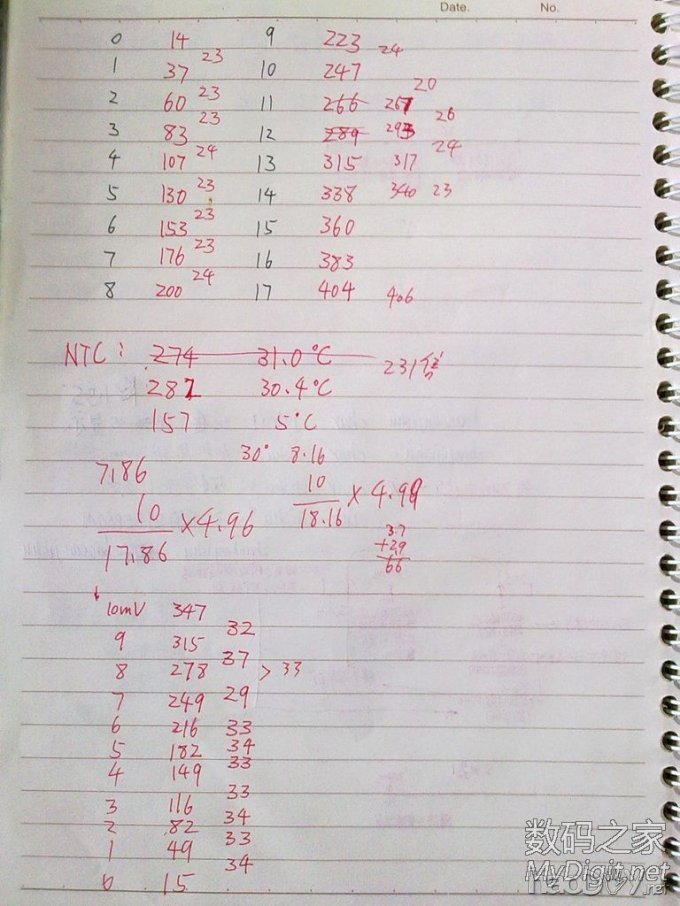 Date. No.
0 14 9 223
23 24
1 37 10 247
23 20
2 60 11 266 267
23 26
3 83 12 289 293
24
4 107 24 13 315 317
5 130 23 14 338 340 23
23
6 153 15 360
23
7 176 16 383
24
8 200 17 404 406
NTC: 274 31.0°C 231倍
281 30.4°C
157 5°C
30° 8.16
7.86
10 10
×4.96 ×4.99
17.86 18.16
37
+29
66
↓
10mV 347
32
9 315
37
8 278 > 33
7 249 29
6 216 33
34
5 182
33
4 149
33
3 116
34
2 82
33
1 49
34
0 15
数码之家
MyDigit.net